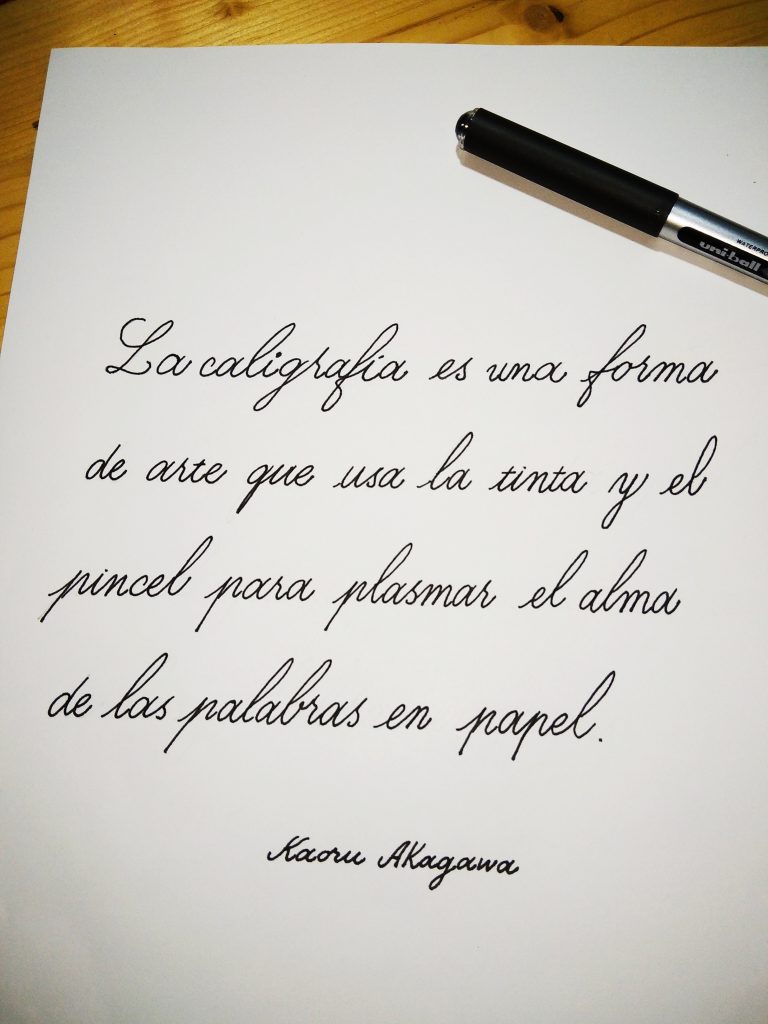 WATERPRO
uni-ball
La caligrafía es una forma
de arte que usa la tinta y el
pincel para plasmar el alma
de las palabras en papel.
Kaoru Akagawa